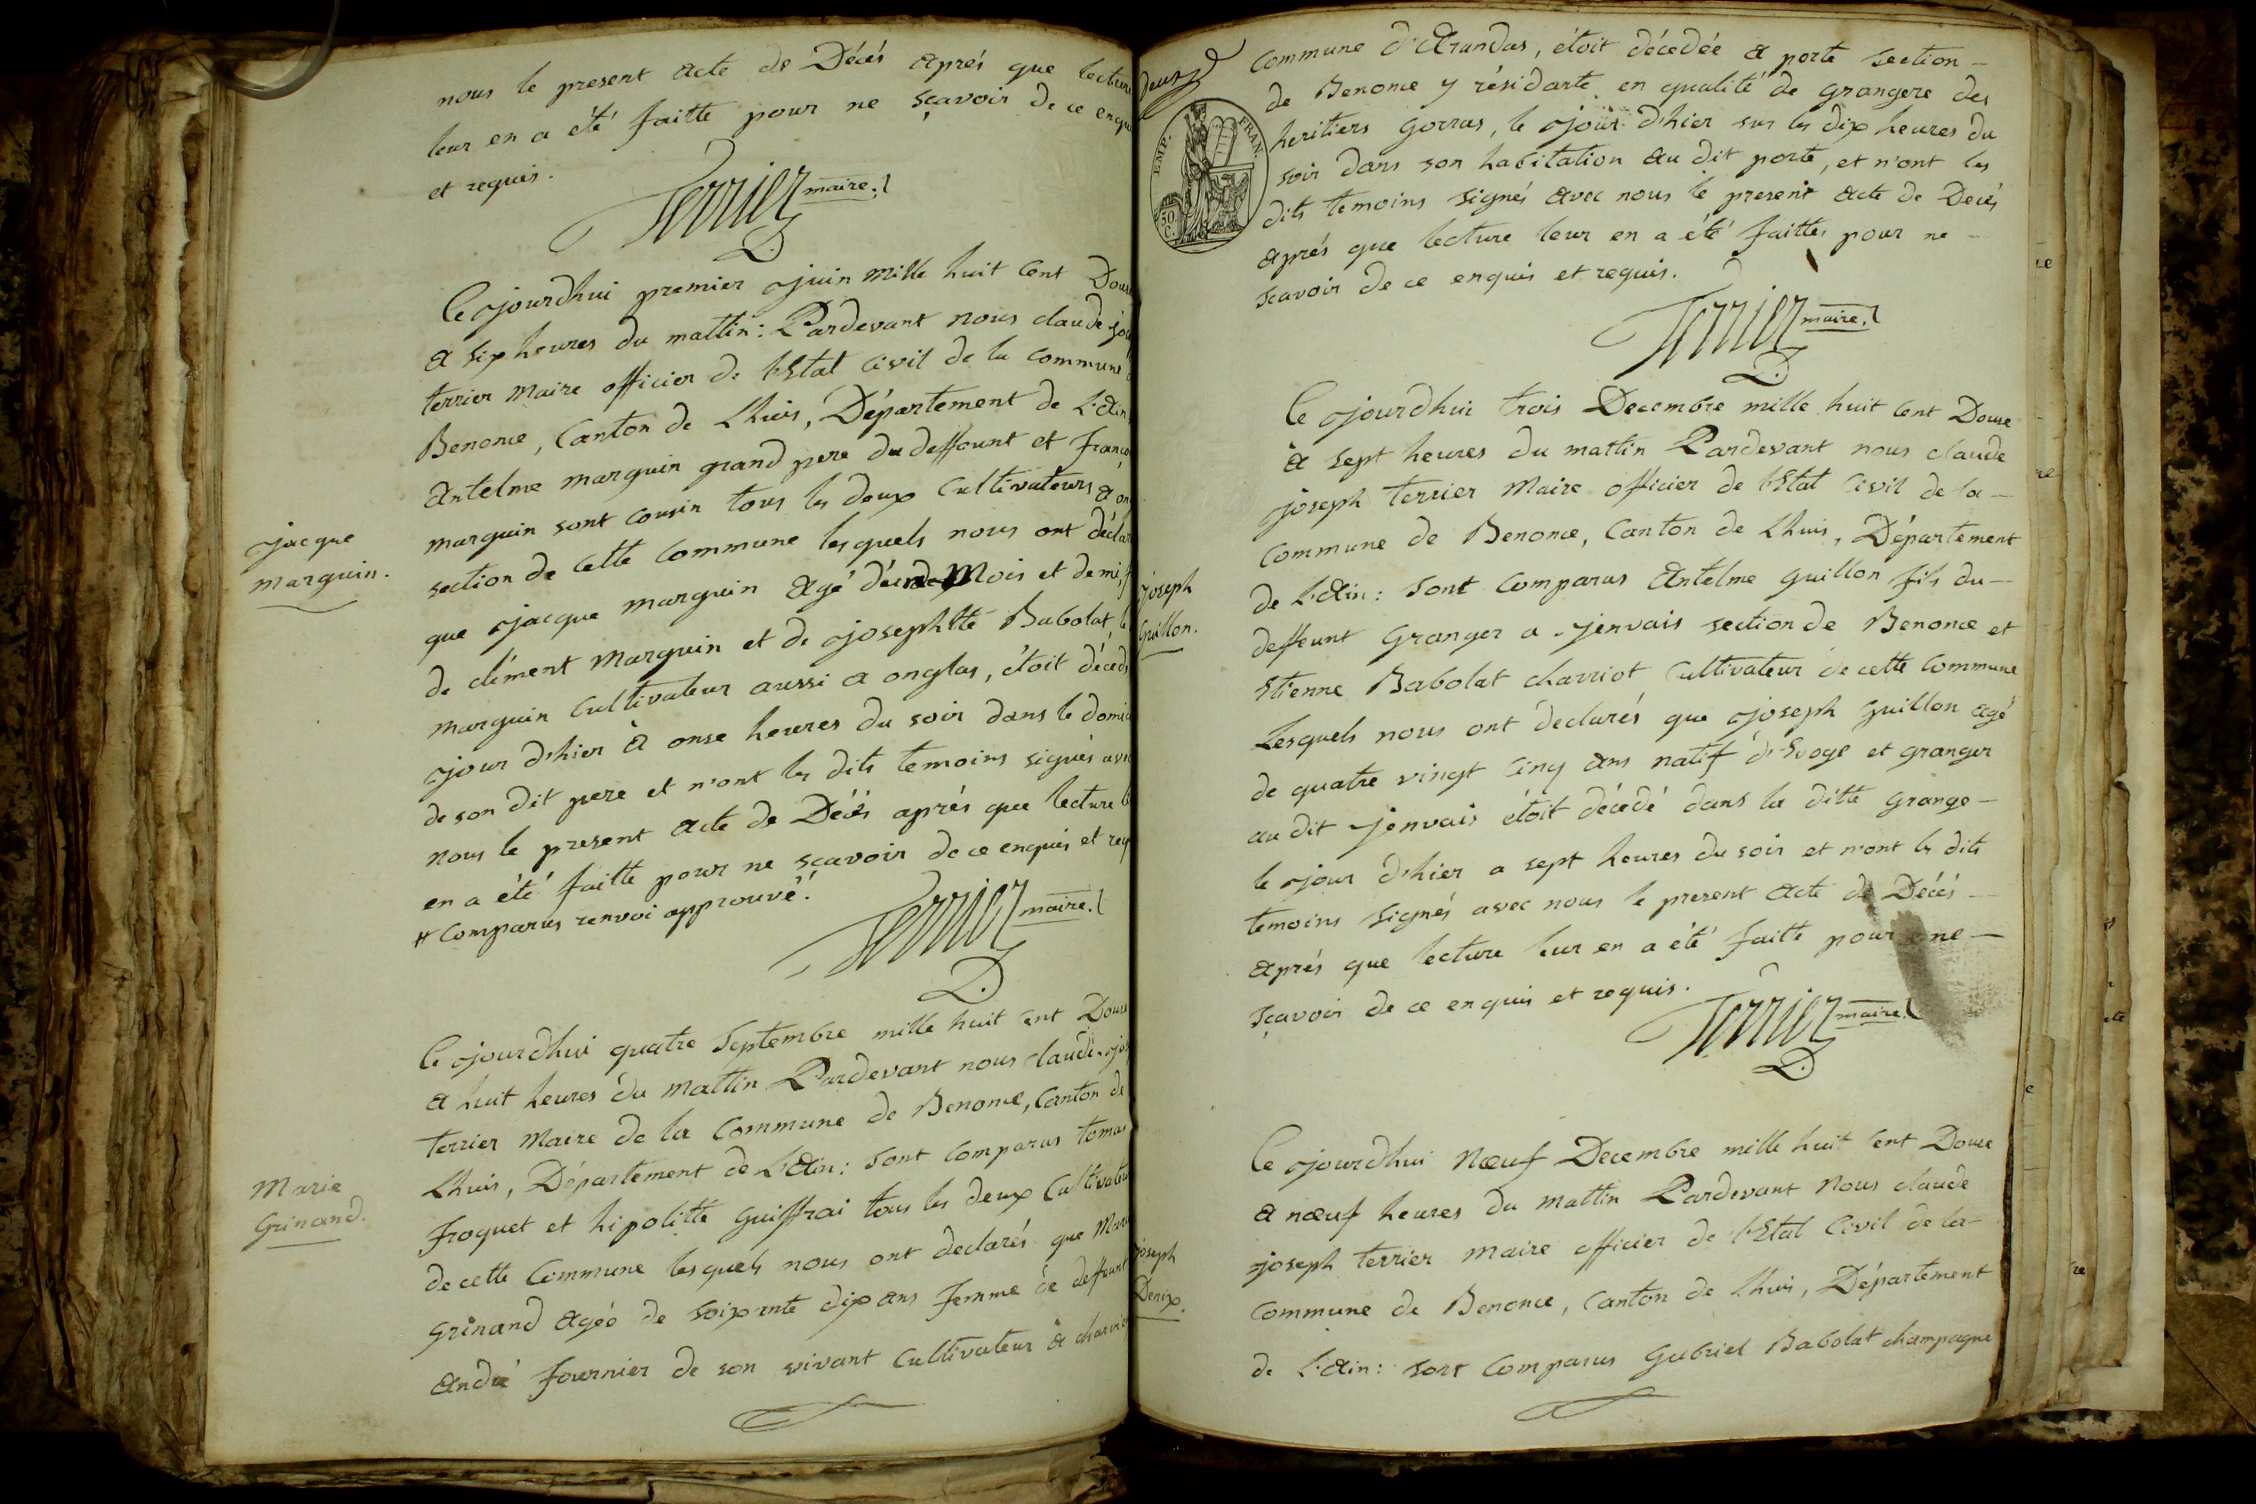 nous le present acte de Décés aprés que lecture
leur en a été faitte pour ne sçavoir de ce enqu
et requis.
Terrier maire.
Ce jourdhui premier juin mille huit cent Dou
a six heures du mattin : Pardevant nous claude jo
terrier maire officier de l'Etat Civil de la commune
Benonce, Canton de Lhuis, Département de L'Ain
Antelme marguin grand pere du deffeunt et franç
marguin sont cousin tous les deux Cultivateurs a on
section de cette commune lesquels nous ont déclar
jacque
marguin.
que jacque marguin agé de Mois et demi, f
de clément marguin et de josephtte Babolat, le
marguin Cultivateur aussi a onglas, étoit décedé
jour d'hier à onse heures du soir dans le domic
de son dit pere et n'ont les dits temoins signés ave
nous le present acte de Décés aprés que lecture l
en a été faitte pour ne sçavoir de ce enquis et req
# Comparus renvoi approuvé.
Terrier maire.
Ce jourdhui quatre Septembre mille huit cent Douse
a huit heures du mattin Pardevant nous claude jo
terrier maire de la commune de Benonce, Canton de
Lhuis, Département de L'Ain : sont comparus tomas
Marie
Grinand.
froquet et hipolitte Guiffrai tous les deux Cultivateu
de cette Commune lesquels nous ont declarés que Mari
Grinand agéé de soixante dix ans femme de deffeunt
André fournier de son vivant Cultivateur à charvie
deux
EMP. FRAN.
50 C.
commune d'Arandas, étoit décedée a porte section
de Benonce y résidante en qualité de grangere des
heritiers gorras, le jour d'hier sur les dix heures du
soir dans son habitation au dit porte, et n'ont les
dits temoins signés avec nous le present acte de Decés
aprés que lecture leur en a été faitte, pour ne
sçavoir de ce enquis et requis.
Terrier maire.
Ce jourdhui trois Decembre mille huit cent Douse
à sept heures du mattin Pardevant nous claude
joseph terrier Maire officier de l'Etat Civil de la
Commune de Benonce, Canton de Lhuis, Département
joseph
guillon.
de L'Ain : sont comparus Antelme guillon fils du
deffeunt Granger a jenvais section de Benonce et
Etienne Babolat charriot Cultivateur de cette Commune
Lesquels nous ont declarés que joseph guillon agé
de quatre vingt cinq ans natif d'Evoge et granger
au dit jenvais étoit décédé dans la ditte grange
le jour d'hier a sept heures du soir et n'ont les dits
temoins signés avec nous le present acte de Décés
aprés que lecture leur en a été faitte pour ne
sçavoir de ce enquis et requis.
Terrier maire.
Ce jourdhui Nœuf Decembre mille huit cent Douse
a nœuf heures du mattin Pardevant Nous claude
joseph terrier maire officier de l'Etat Civil de la
joseph
Denix.
commune de Benonce, Canton de Lhuis, Département
de L'Ain : sont comparus Gabriel Babolat champagne